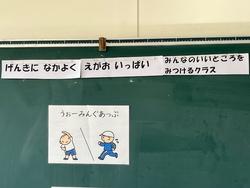 げんきに なかよく
えがお いっぱい
みんなのいいところを
みつけるクラス
うぉーみんぐあっぷ